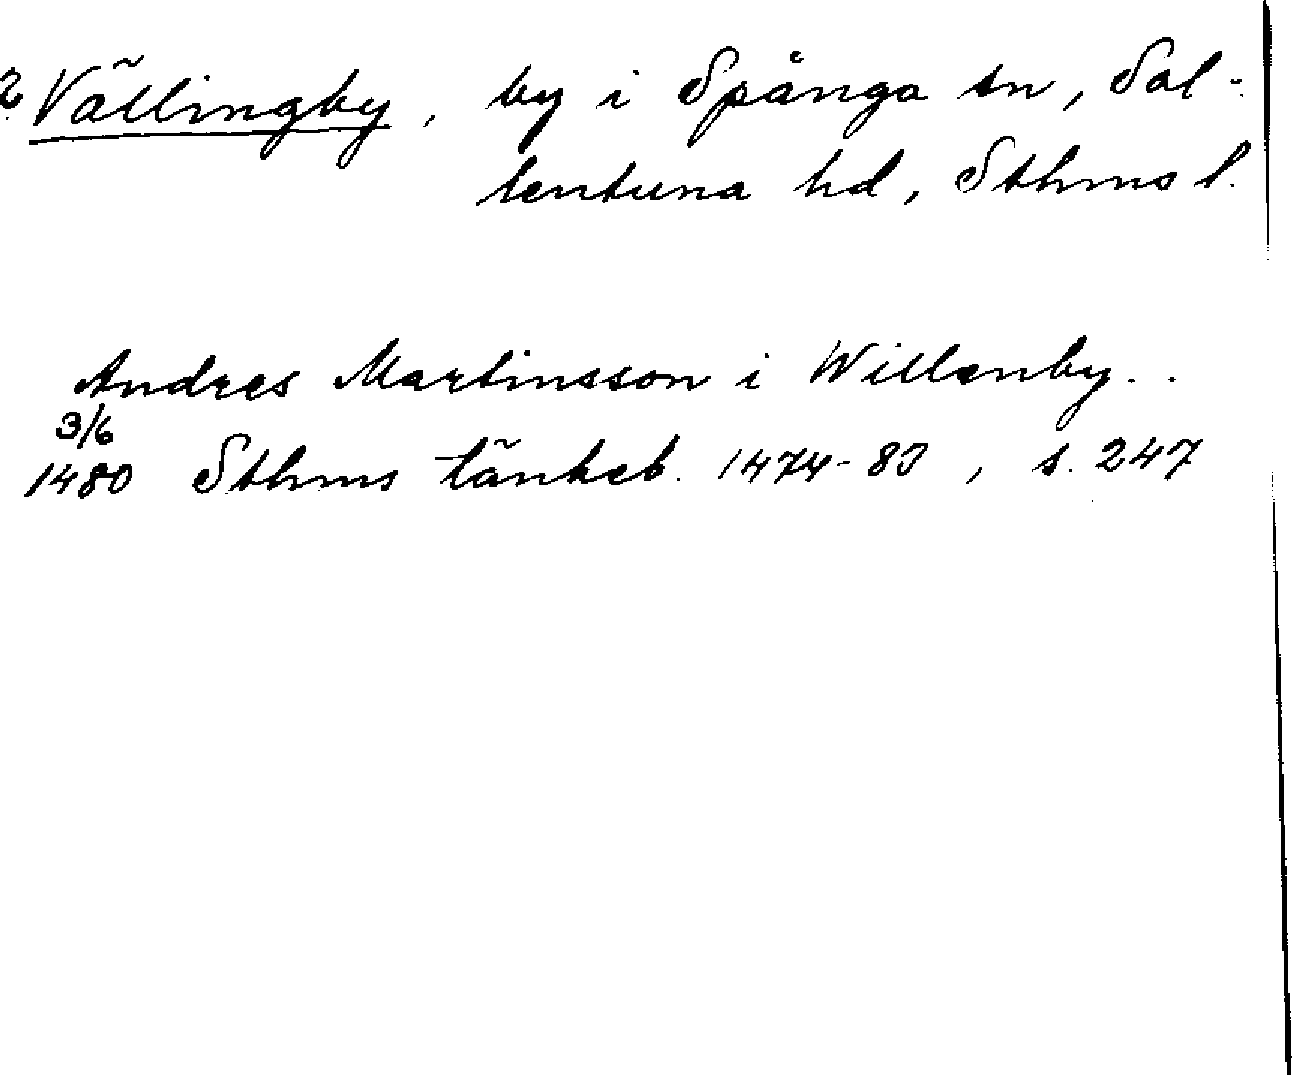 2 Vällingby, by i Spånga sn, Sol-
lentuna hd, Sthms l.
Andres Martinsson i Willenby..
3/6
1480 Sthms tänkeb. 1474-83, s. 247